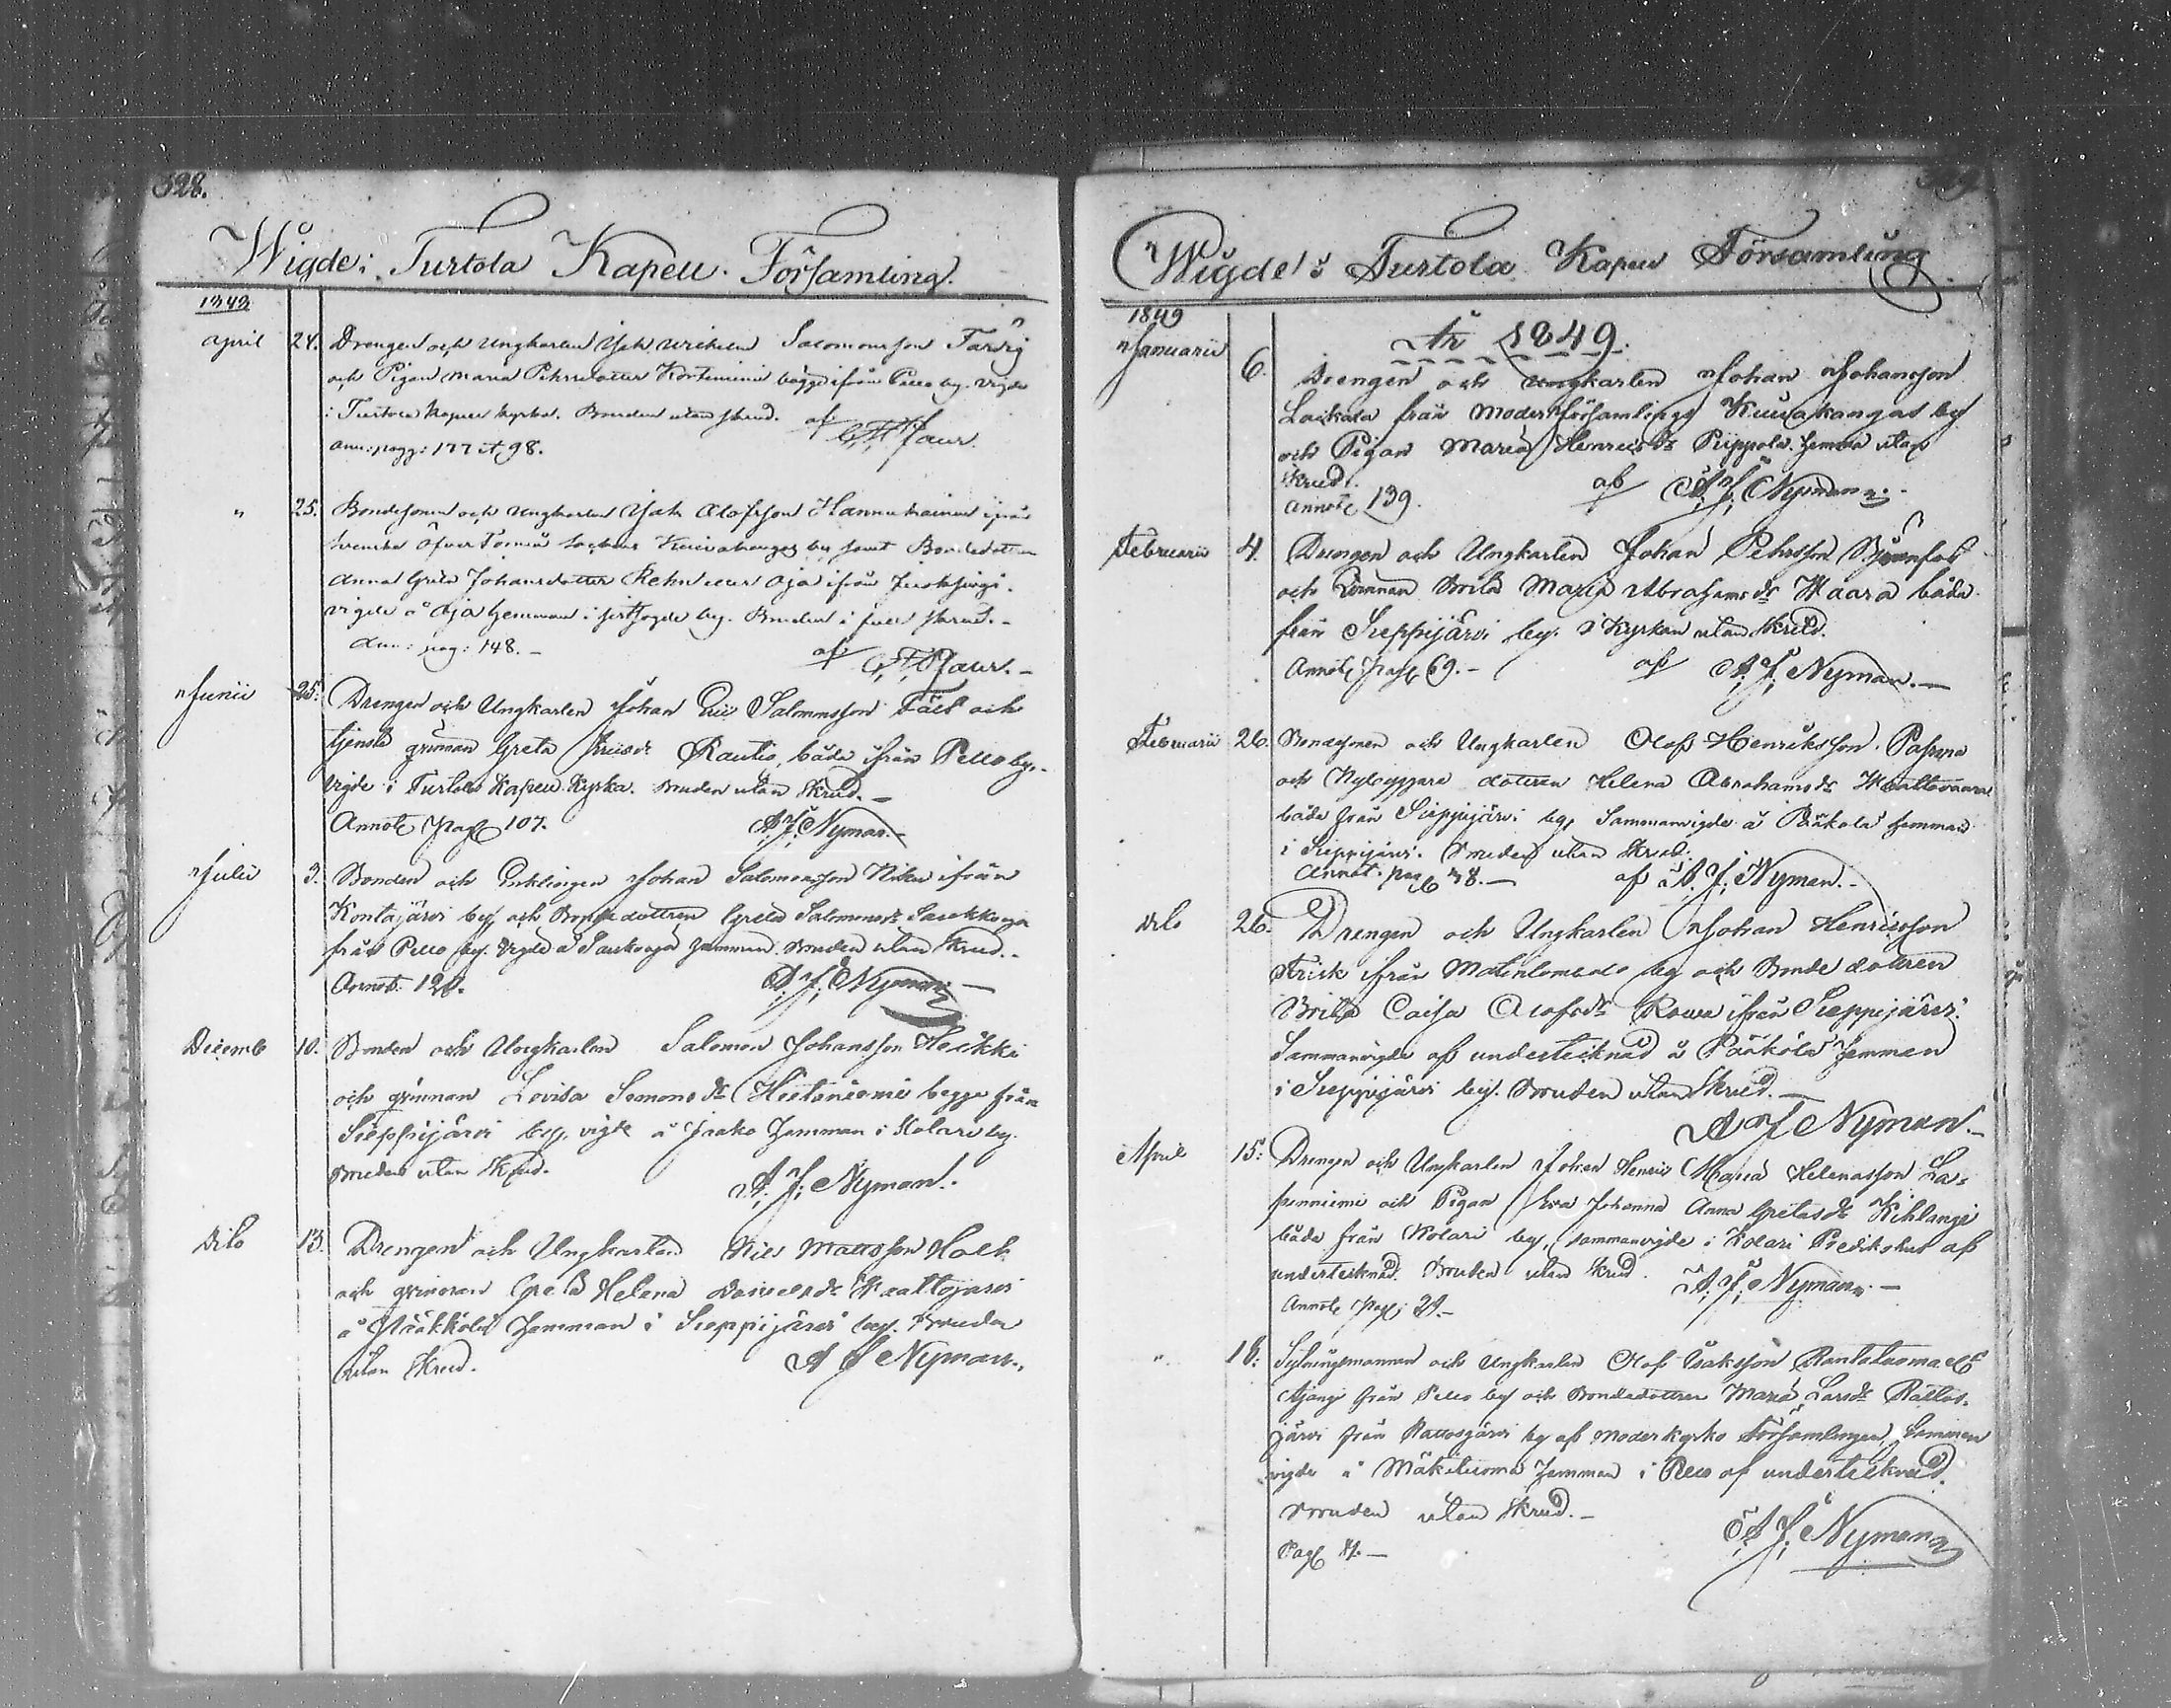 328.
Wigde i Turtola Kapell Församling.
1848
April 24. Drengen och Ungkarlen Isak Wilhelm Salomonsson
och Pigan Maria Pehrsdotter Korteniemi bägge ifrån Pello by. Vigde
i Turtola Kapell kyrka. Bruden utan skrud. af
ann: pagg: 177 et 98.
" 25. Bondesonen och Ungkarlen Isak Olofsson Hannukainen ifrån
Svenska Öfver Torneå Sockens Kuivakangas by samt Bondedottren
Anna Greta Johansdotter Oja ifrån
vigde å Oja hemman i sistsagde by. Bruden i full skrud. -
Ann: pag: 148. - af
Junii 25. Drengen och Ungkarlen Johan Eric Salomonsson Fält och
tjenste qvinnan Greta Ericsdr Rautio, båda ifrån Pello by.
Vigde i Turtola Kapell Kyrka. Bruden utan Skrud. -
Annot. Pag 107. A. J. Nyman. -
Julii 3. Bonden och Enklingen Johan Salomonsson Niska ifrån
Kontajärvi by och Bonde dottren Greta Salomonsdr
från Pello by. Vigde å hemman. Bruden utan Skrud. -
Annot. A. J. Nyman -
Decemb 10. Bonden och Ungkarlen Salomon Johansson Heikki
och qvinnan Lovisa Simonsdr Hietaniemi begge från
Sieppijärvi by, vigde å Jaako Hemman i Kolari by.
Bruden utan Skrud. A. J. Nyman.
Dito 13. Drengen och Ungkarlen Nils Mattsson Halk
och qvinnan Greta Helena Danielsdr Kaaltojärvi
å Pääkkölä Hemman i Sieppijärvi by. Bruden
utan Skrud. A J Nyman.
Wigde i Turtola Kapell Församling
1849
År 1849.
Januarii 6. Drengen och Ungkarlen Johan Johansson
från Moder Församlings Kuivakangas by
och Pigan Maria Henricsdr Piippola hemma utan
Skrud. af A J Nyman.
Annot. 139.
Februarii 4. Drengen och Ungkarlen Johan Pehrsson
och Qvinnan Brita Maria Abrahamsdr Waara båda
från Sieppijärvi by. i Kyrkan utan Skrud.
Annot. Pag 69. - af A. J. Nyman. -
Februarii 26. Bondesonen och Ungkarlen Olof Henriksson
och Nybyggare dottren Helena Abrahamsdr
både från Sieppijärvi by, Sammanvigde å Pääkölä hemman
i Sieppijärvi. Bruden utan Skrud.
Annot. pag 48. - af A. J. Nyman. -
Dito 26. Drengen och Ungkarlen Johan Henricsson
Frisk ifrån by och Bonde dottren
Brita Caisa Olofsdr Rowa ifrån Sieppijärvi.
Sammanvigde af undertecknad å Pääkölä Hemman
i Sieppijärvi by. Bruden utan Skrud. -
A J Nyman. -
April 15. Drengen och Ungkarlen Johan Henric Maria Helenasson La-
penniemi och Pigan Eva Johanna Anna Gretasdr Kihlangi
båda från Kolari by, sammanvigde i Kolari Predikohus af
undertecknad. Bruden utan Skrud. A. J. Nyman. -
Annot. Pag: 21. -
" 18. Sytningsmannen och Ungkarlen Olof Isaksson
från Pello by och Bondedottren Maria Larsdr Rattos-
järvi från Rattosjärvi by af Moderkyrko Församlingen, Samman
vigde å Mäkituoma Hemman i Pello af undertecknad.
Bruden utan Skrud. - A. J. Nyman
Pag 4. -